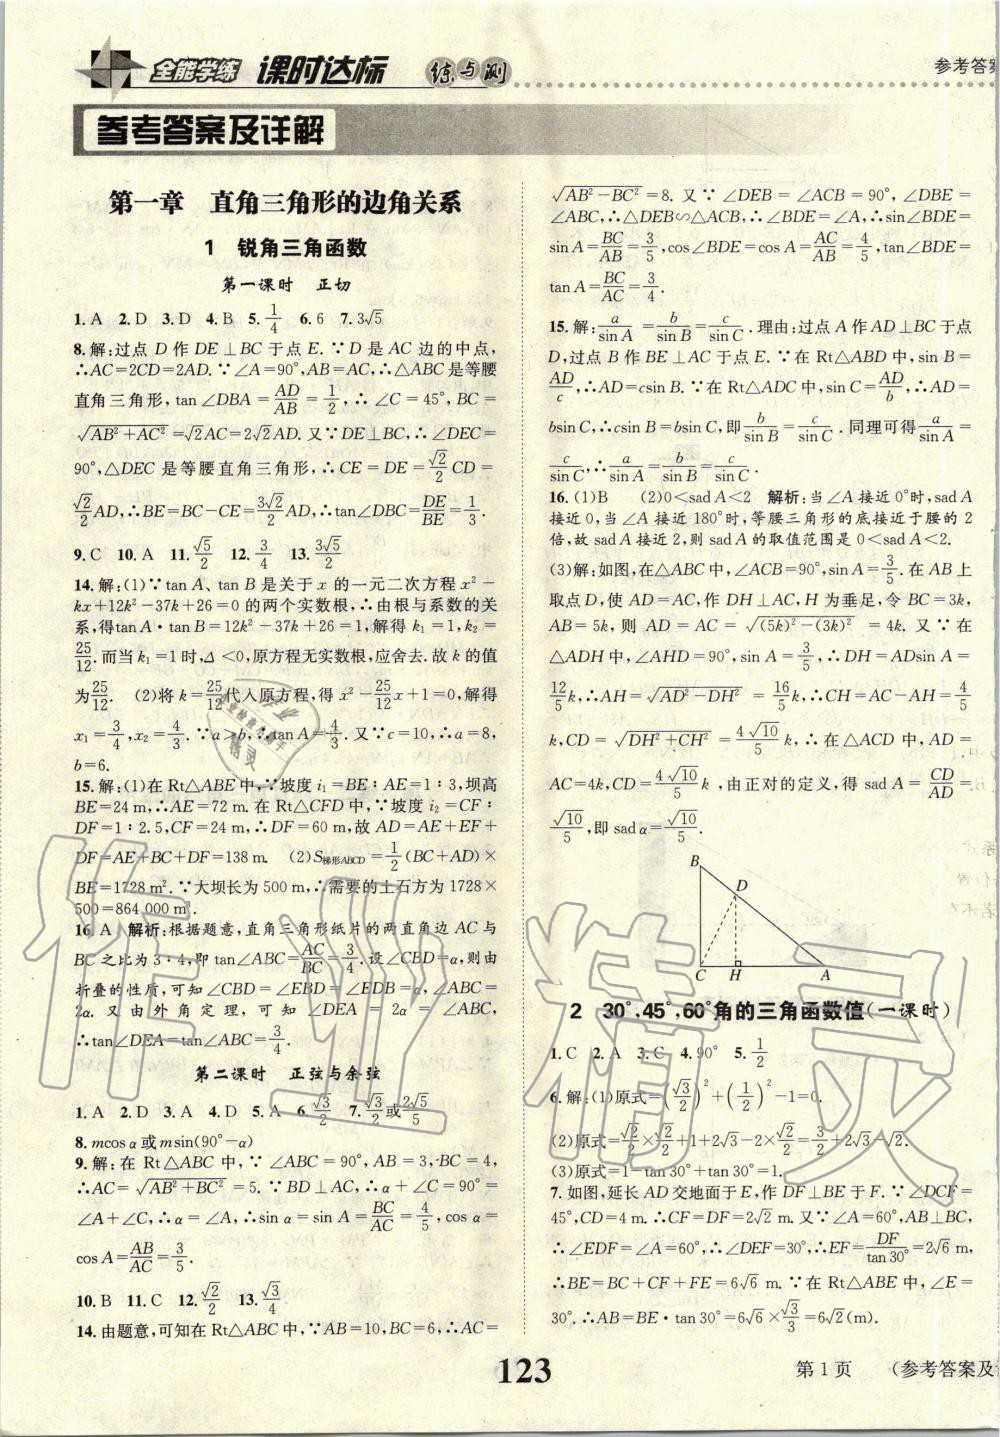 全能学练 课时达标 练与测
参考答案
参考答案及详解
第一章 直角三角形的边角关系
1 锐角三角函数
第一课时 正切
1.A 2.D 3.D 4.B 5.1/4 6.6 7.3√5
8.解:过点 D 作 DE⊥BC 于点 E.∵D 是 AC 边的中点,
∴AC=2CD=2AD.∵∠A=90°,AB=AC,∴△ABC 是等腰
直角三角形,tan∠DBA=AD/AB=1/2,∴∠C=45°,BC=
√(AB²+AC²)=√2AC=2√2AD.又∵DE⊥BC,∴∠DEC=
90°,△DEC 是等腰直角三角形,∴CE=DE=√2/2CD=
√2/2AD,∴BE=BC-CE=3√2/2AD,∴tan∠DBC=DE/BE=1/3.
9.C 10.A 11.√5/2 12.3/4 13.3√5/2
14.解:(1)∵tan A、tan B 是关于 x 的一元二次方程 x²-
kx+12k²-37k+26=0 的两个实数根,∴由根与系数的关
系,得tan A·tan B=12k²-37k+26=1,解得 k₁=1,k₂=
25/12.而当 k₁=1时,Δ<0,原方程无实数根,应舍去.故 k 的值
为25/12. (2)将 k=25/12代入原方程,得 x²-25/12x+1=0,解得
x₁=3/4,x₂=4/3.∵a>b,∴tan A=4/3.又∵c=10,∴a=8,
b=6.
15.解:(1)在 Rt△ABE 中,∵坡度 i₁=BE∶AE=1∶3,坝高
BE=24 m,∴AE=72 m.在 Rt△CFD 中,∵坡度 i₂=CF∶
DF=1∶2.5,CF=24 m,∴DF=60 m,故 AD=AE+EF+
DF=AE+BC+DF=138 m. (2)S梯形ABCD=1/2(BC+AD)×
BE=1728 m².∵大坝长为 500 m,∴需要的土石方为 1728×
500=864 000 m³.
16.A 解析:根据题意,直角三角形纸片的两直角边 AC 与
BC 之比为 3∶4,即 tan∠ABC=AC/BC=3/4.设∠CBD=α,则由
折叠的性质,可知∠CBD=∠EBD=∠EDB=α,∠ABC=
2α.又由外角定理,可知∠DEA=2α=∠ABC,
∴tan∠DEA=tan∠ABC=3/4.
第二课时 正弦与余弦
1.A 2.D 3.A 4.D 5.A 6.√3/2 7.√3/2或2√5/5
8.mcos α 或 msin(90°-α)
9.解:在 Rt△ABC 中,∵∠ABC=90°,AB=3,BC=4,
∴AC=√(AB²+BC²)=5.∵BD⊥AC,∴α+∠C=90°=
∠A+∠C,∴α=∠A,∴sin α=sin A=BC/AC=4/5,cos α=
cos A=AB/AC=3/5.
10.B 11.C 12.√2/2 13.√3/4
14.由题意,可知在 Rt△ABC 中,∵AB=10,BC=6,∴AC=
√(AB²-BC²)=8.又∵∠DEB=∠ACB=90°,∠DBE=
∠ABC,∴△DEB∽△ACB,∴∠BDE=∠A,∴sin∠BDE=
sin A=BC/AB=3/5,cos∠BDE=cos A=AC/AB=4/5,tan∠BDE=
tan A=BC/AC=3/4.
15.解:a/sin A=b/sin B=c/sin C.理由:过点 A 作 AD⊥BC 于点
D,过点 B 作 BE⊥AC 于点 E.在 Rt△ABD 中,sin B=
AD/c,∴AD=csin B.∵在 Rt△ADC 中,sin C=AD/b,∴AD=
bsin C,∴csin B=bsin C,即b/sin B=c/sin C.同理可得a/sin A=
c/sin C,∴a/sin A=b/sin B=c/sin C.
16.(1)B (2)0<sad A<2 解析:当∠A 接近 0°时,sad A
接近 0,当∠A 接近 180°时,等腰三角形的底接近于腰的 2
倍,故 sad A 接近 2,则 sad A 的取值范围是 0<sad A<2.
(3)解:如图,在△ABC 中,∠ACB=90°,sin A=3/5.在 AB 上
取点 D,使 AD=AC,作 DH⊥AC,H 为垂足,令 BC=3k,
AB=5k,则 AD=AC=√((5k)²-(3k)²)=4k.又∵在
△ADH 中,∠AHD=90°,sin A=3/5,∴DH=ADsin A=
12/5k,∴AH=√(AD²-DH²)=16/5k,∴CH=AC-AH=4/5
k,CD=√(DH²+CH²)=4√10/5k,∴在△ACD 中,AD=
AC=4k,CD=4√10/5k,由正对的定义,得 sad A=CD/AD=
√10/5,即 sad α=√10/5.
B
D
C H A
2 30°,45°,60°角的三角函数值(一课时)
1.C 2.A 3.C 4.90° 5.1/2
6.解:(1)原式=(√3/2)²+(1/2)²-1=0.
(2)原式=√2/2×√2/2+1+2√3-2×√2/2=3/2+2√3-√2.
(3)原式=1-tan 30°+tan 30°=1.
7.如图,延长 AD 交地面于 E,作 DF⊥BE 于 F.∵∠DCF=
45°,CD=4 m.∴CF=DF=2√2 m.又∵∠A=60°,AB⊥BC,
∴∠EDF=∠A=60°,∴∠DEF=30°,∴EF=DF/tan30°=2√6 m,
∴BE=BC+CF+FE=6√6 m.∵在 Rt△ABE 中,∠E=
30°.∴AB=BE·tan 30°=6√6×√3/3=6√2(m).
123
第 1 页
(参考答案及
作业精灵